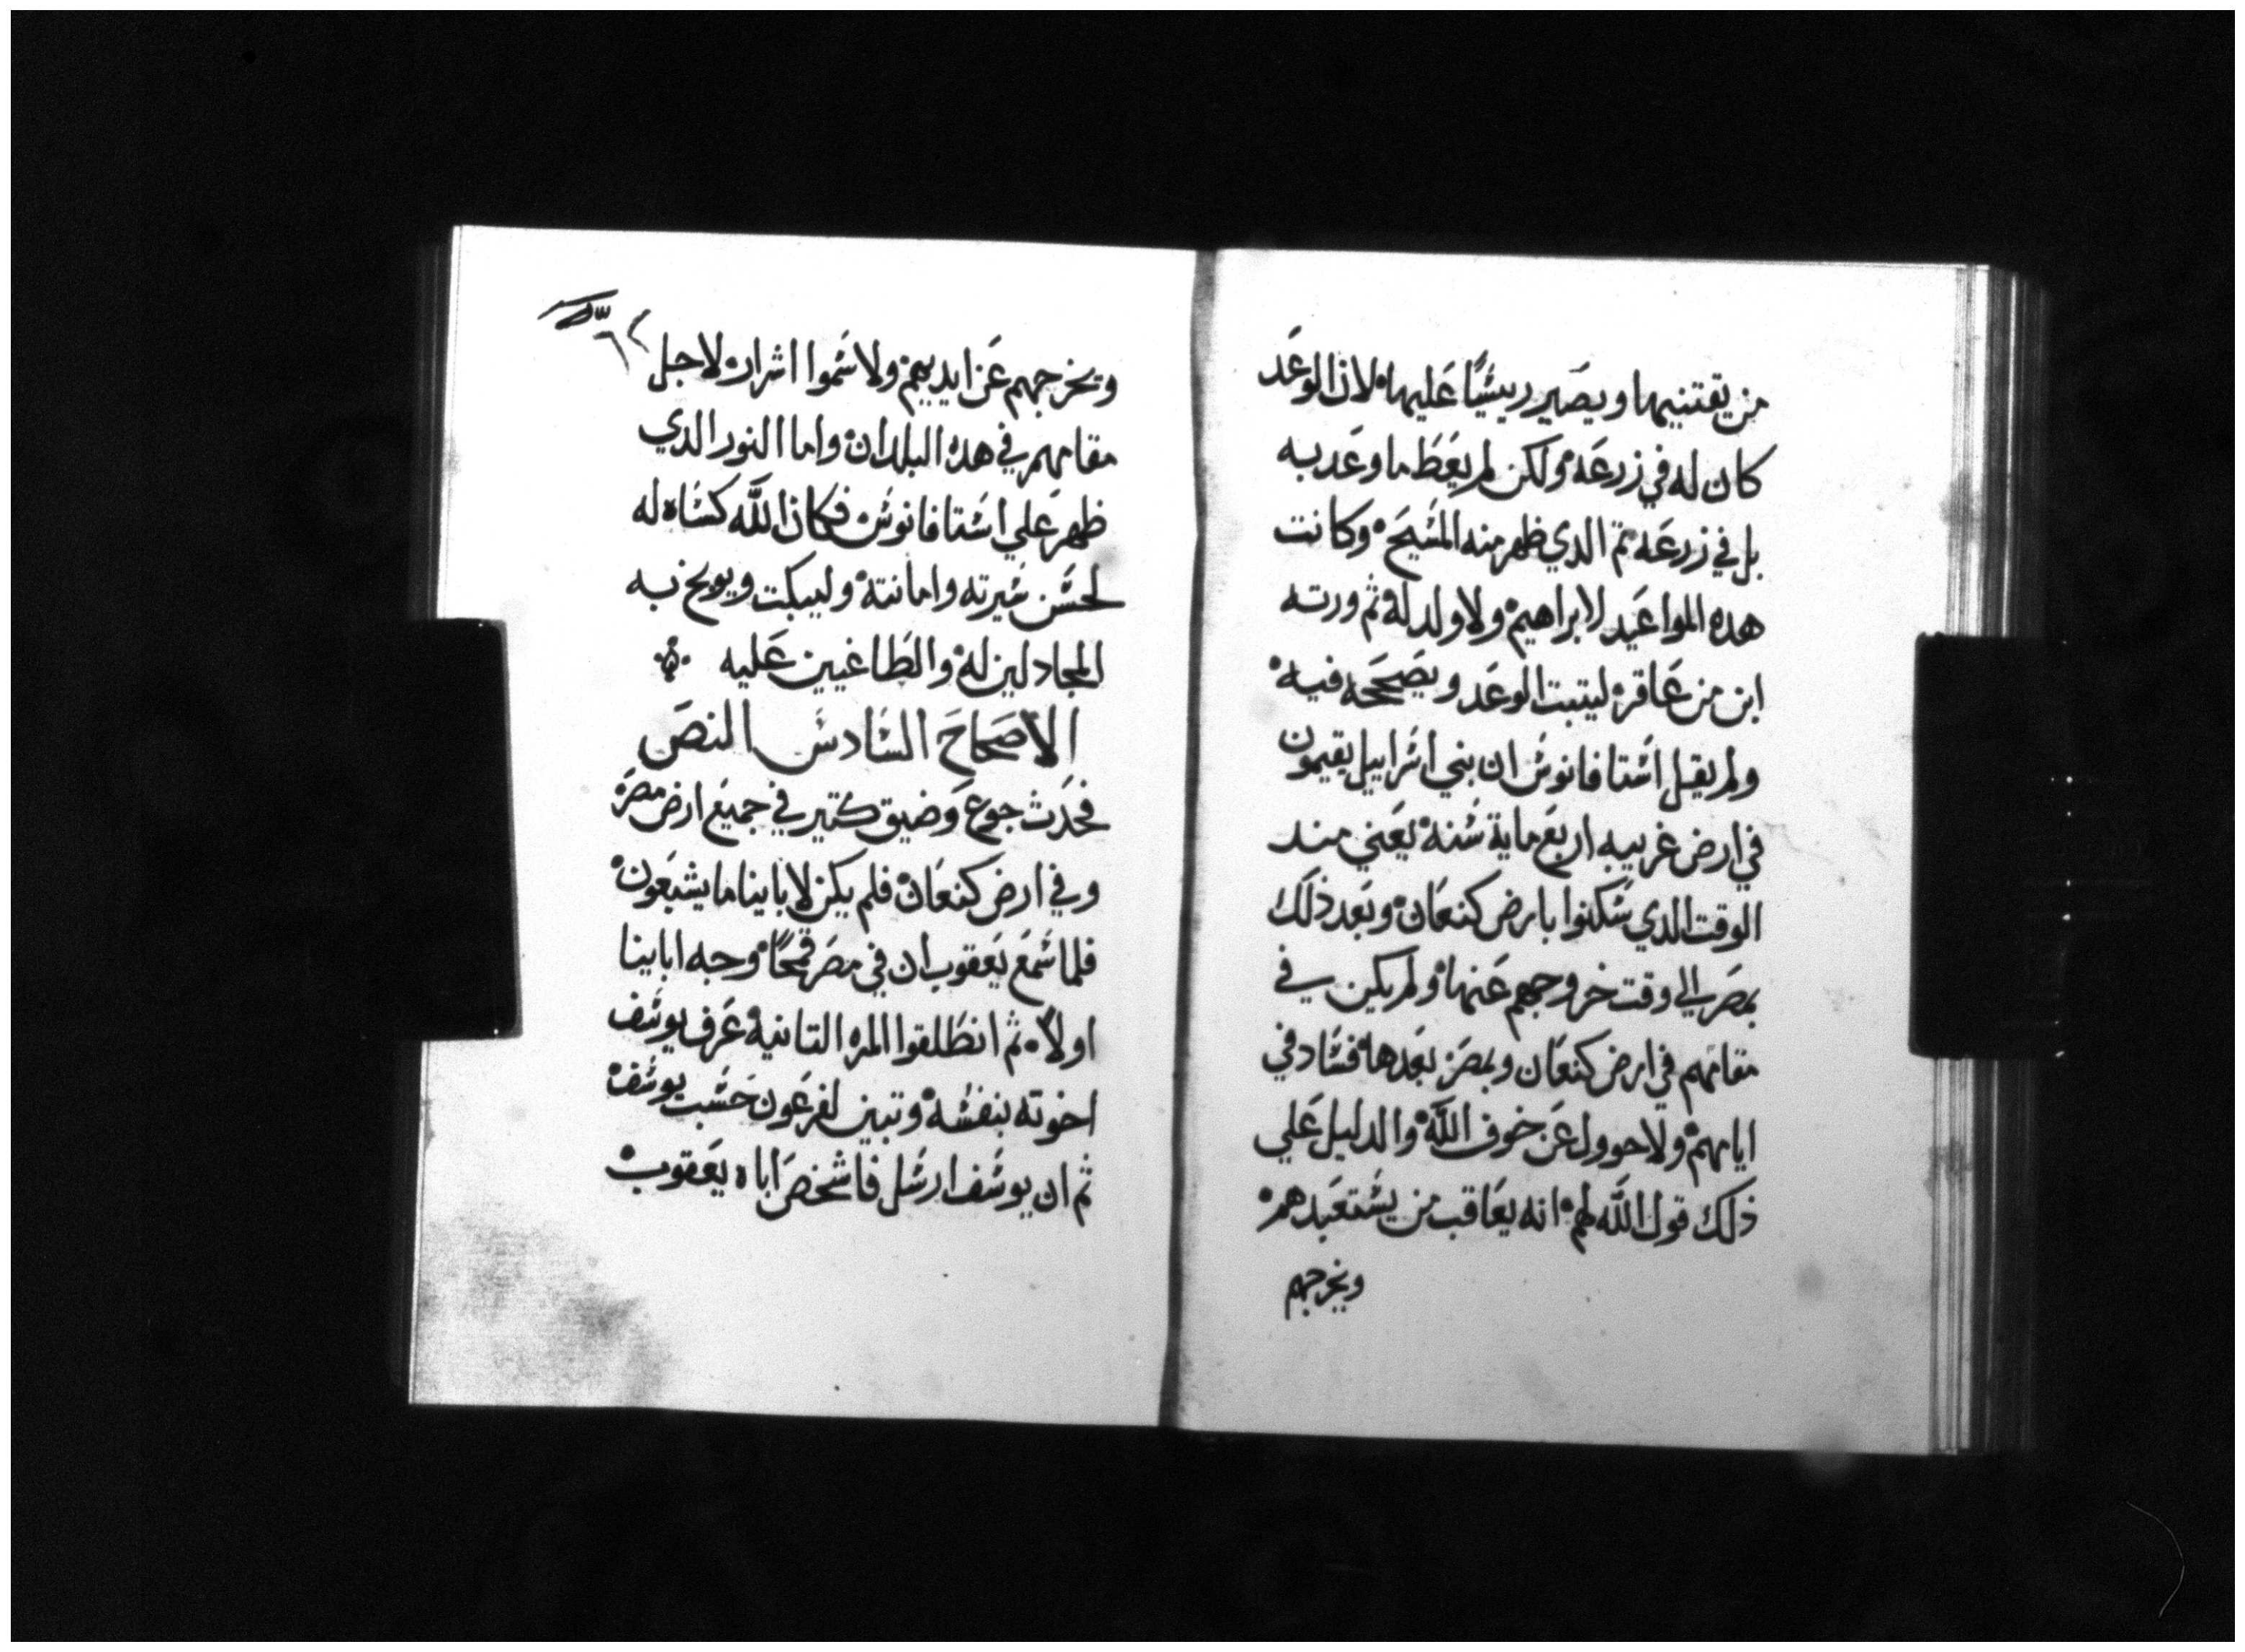 من يقتنيها ويصير رييسًا عليها لان الوعد
كان له في زرعه ولكن لم يعط ما وعد به
بل في زرعه تم الدي ظهر منه المسيح وكانت
هده المواعيد لابراهيم ولا ولد له ثم ورته
ابن من عاقره ليتبت الوعد ويصححه فيه
ولم يقل استافانوس ان بني اسراييل يقيمون
في ارض غريبه اربع ماية سنة يعني مند
الوقت الدي سكنوا بارض كنعان وبعد ذلك
بمصر الي وقت خروجهم عنها ولم يكن في
مقامهم في ارض كنعان وبمصر بعدها فساد في
ايامهم ولا حوول عن خوف الله والدليل علي
ذلك قول الله لهم انه يعاقب من يستعبدهم
ويخرجهم
وتخرجهم عن ايدييهم ولا سموا اشرار لاجل
مقامهم في هده البلدان واما النور الدي
ظهر علي استافانوس فكان الله كساه له
لحسن سيرته وامانته وليبكت ويوبخ به
المجادلين له والطاغيين عليه
الاصحاح السادس النص
فحدث جوع وضيق كتير في جميع ارض مصر
وفي ارض كنعان فلم يكن لابايناما يشبعون
فلما سمع يعقوب ان في مصر قمحًا وجه ابابنا
اولًا ثم انطلقوا المره التانيه عرف يوسف
اخوته بنفسه وتبين لفرعون حسب يوسف
ثم ان يوسف ارسل فاشخص اباه يعقوب